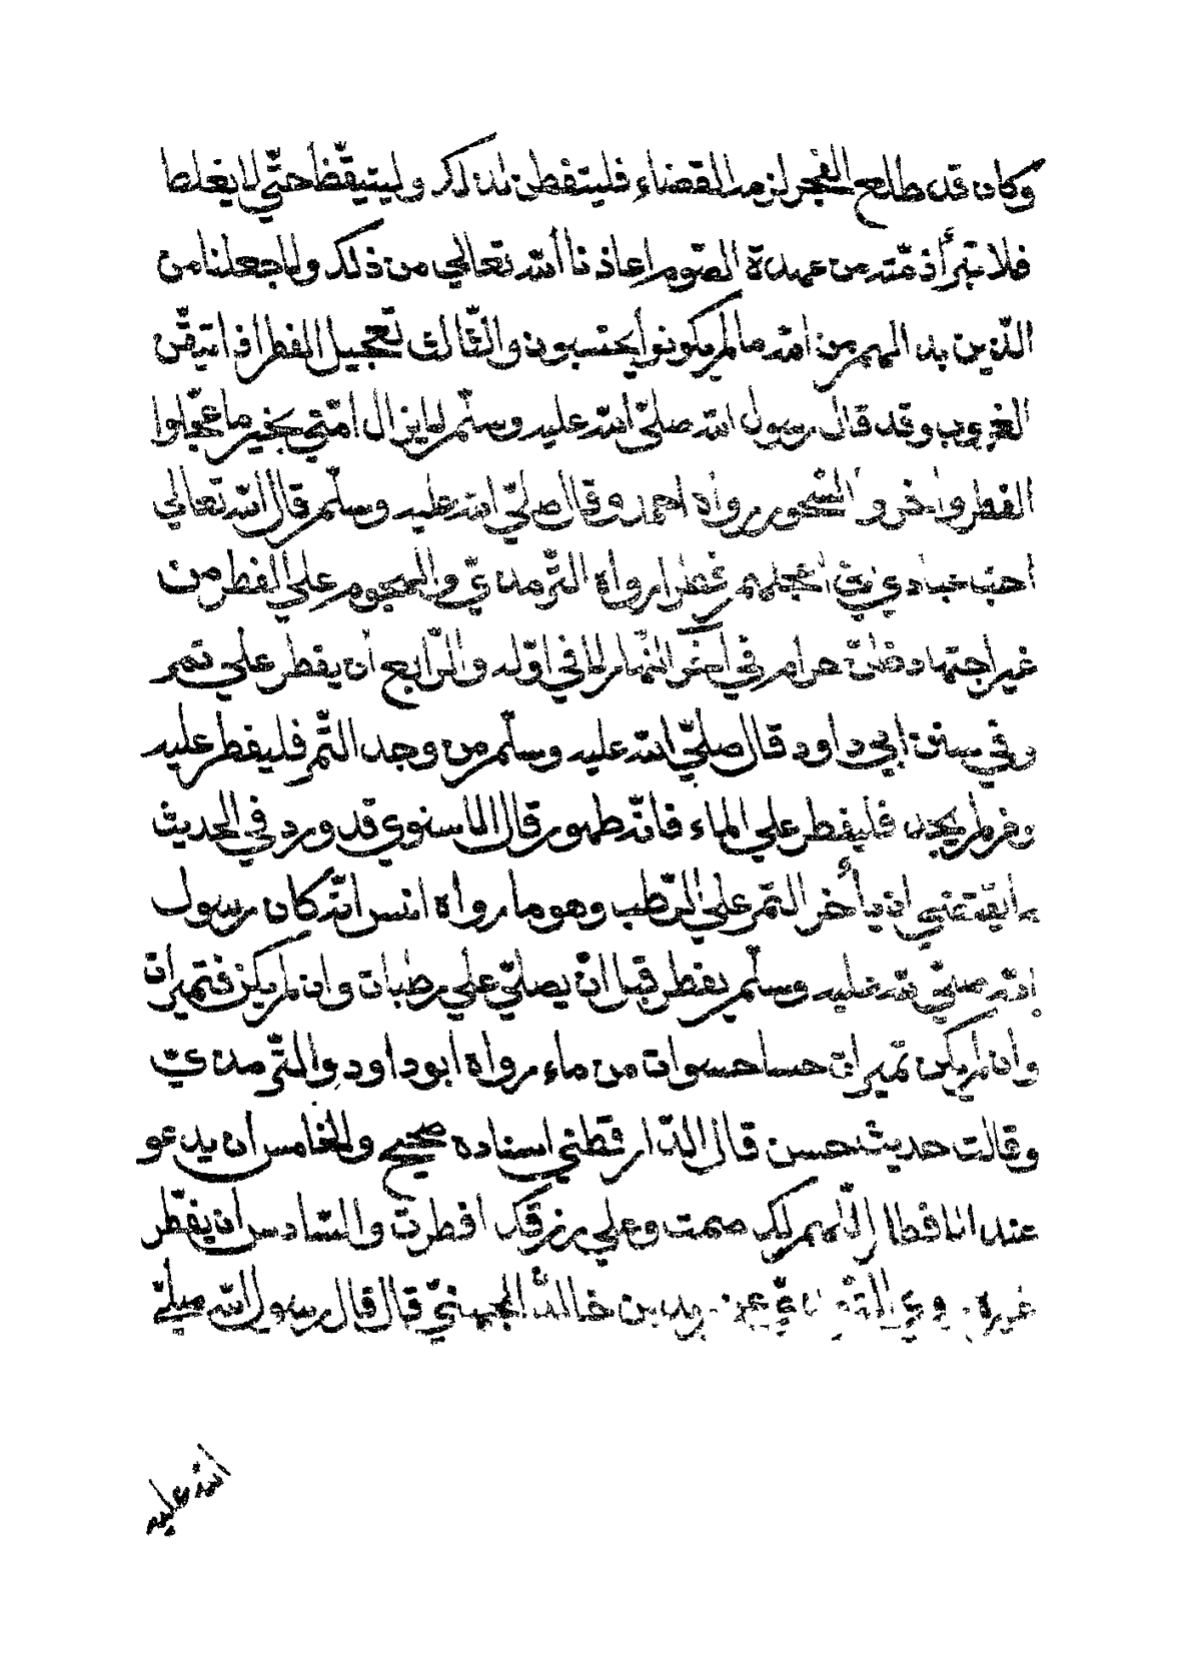 وكان قد طلع الفجر لزمه القضاء فليتفطن لذلك وليتيقّظ حتّي لا يغلط
فلا تبرأ ذمّته من عهدة الصّوم اعاذنا الله تعالي من ذلك ولا جعلنا من
الذين بدا لهم من الله ما لم يكونوا يحتسبون والثّالث تعجيل الفطر اذا تيقّن
الغروب وقد قال رسول الله صلّي الله عليه وسلّم لا يزال امّتي بخير ما عجّلوا
الفطر واخروا السّحور رواه احمد وقال صلّي الله عليه وسلّم قال الله تعالي
احبّ عبادي اليّ اعجلهم فطرا رواه التّرمذيّ والهجوم علي الفطر من
غير اجتهاد وظنّ حرام في آخر النّهار لا في اوّله والرّابع أن يفطر علي تمر
وفي سنن ابي داود قال صلّي الله عليه وسلّم من وجد التّمر فليفطر عليه
ومن لم يجد فليفطر علي الماء فانّه طهور قال الاسنوي قد ورد في الحديث
ما يقتضي ان يأخر التّمر علي الرّطب وهو ما رواه انس انّه كان رسول
الله صلّي الله عليه وسلّم يفطر قبل انّ يصلّي علي رطبات وان لم يكن فتميرات
وان لم يكن تميرات حسا حسوات من ماء رواه ابو داود والتّرمذيّ
وقالت حديث حسن قال الدّار قطني اسناده صحيح والخامس ان يدعو
عند الافطار اللّهم لك صمت وعلي رزقك افطرت والسّادس ان يفطّر
غيره روي التّرمذيّ عن زيد بن خالد الجهنيّ قال قال رسول الله صلّي
الله عليه